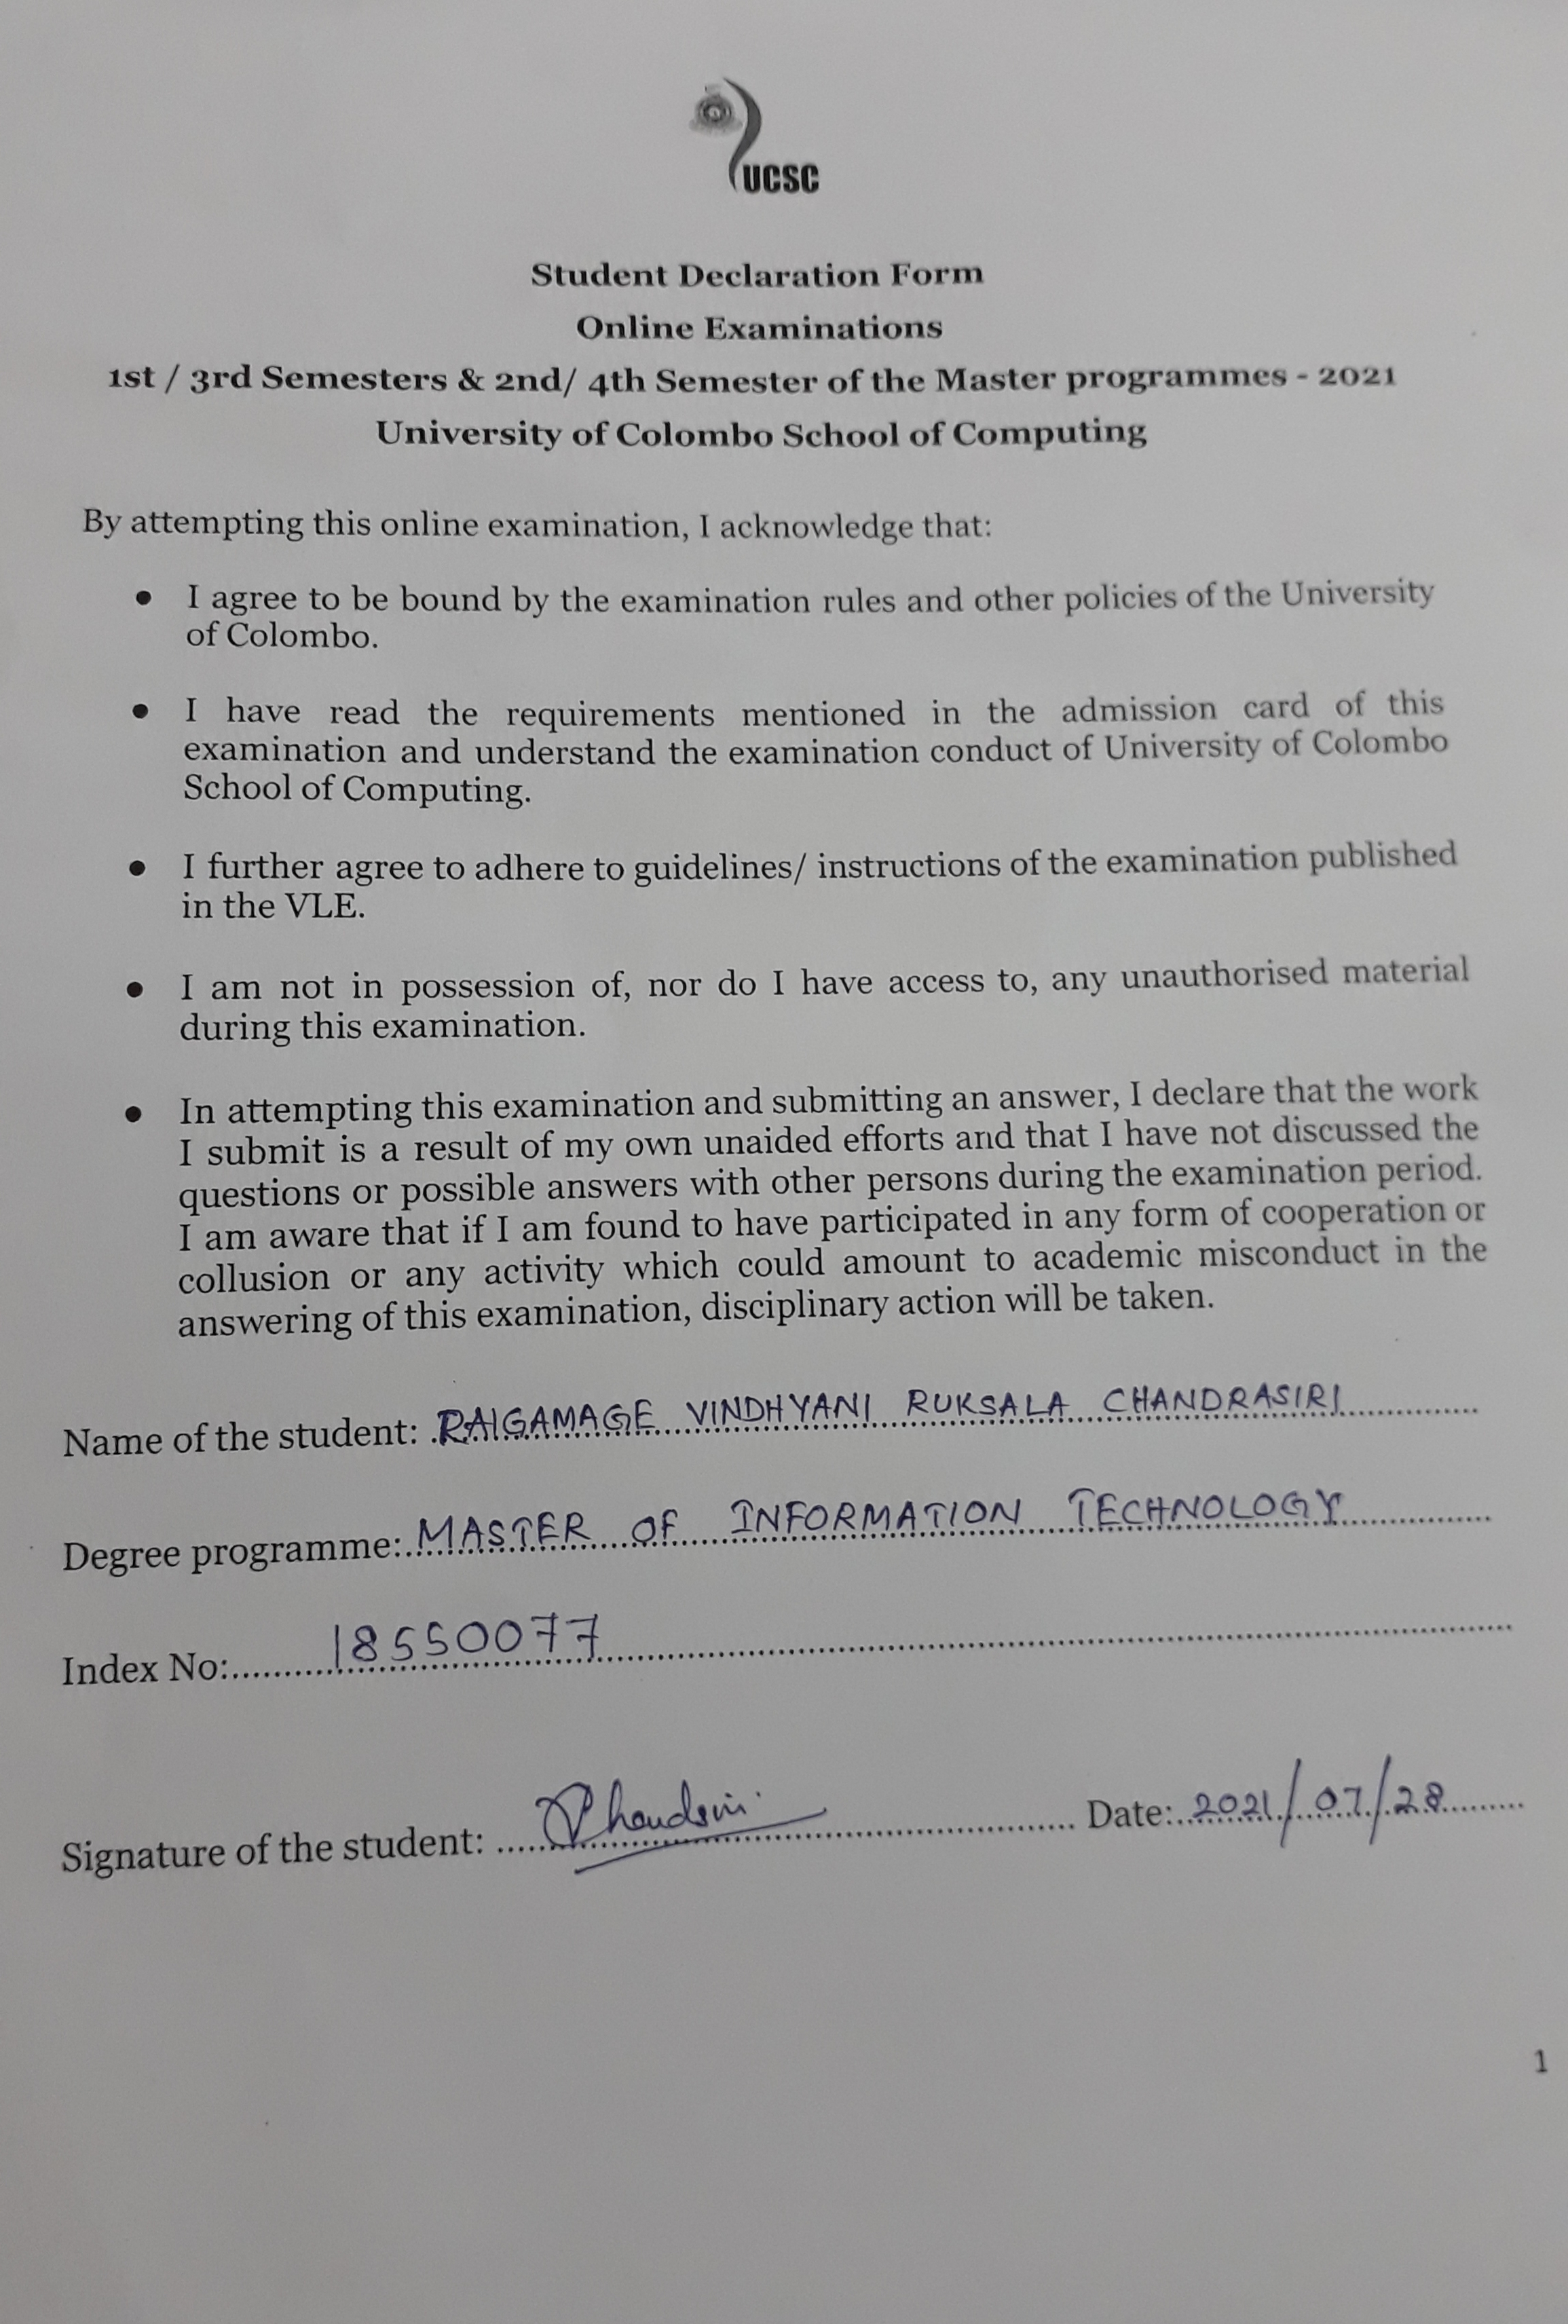 UCSC
Student Declaration Form
Online Examinations
1st / 3rd Semesters & 2nd/ 4th Semester of the Master programmes - 2021
University of Colombo School of Computing
By attempting this online examination, I acknowledge that:
• I agree to be bound by the examination rules and other policies of the University
of Colombo.
• I have read the requirements mentioned in the admission card of this
examination and understand the examination conduct of University of Colombo
School of Computing.
• I further agree to adhere to guidelines/ instructions of the examination published
in the VLE.
• I am not in possession of, nor do I have access to, any unauthorised material
during this examination.
• In attempting this examination and submitting an answer, I declare that the work
I submit is a result of my own unaided efforts and that I have not discussed the
questions or possible answers with other persons during the examination period.
I am aware that if I am found to have participated in any form of cooperation or
collusion or any activity which could amount to academic misconduct in the
answering of this examination, disciplinary action will be taken.
Name of the student: RAIGAMAGE VINDHYANI RUKSALA CHANDRASIRI
Degree programme: MASTER OF INFORMATION TECHNOLOGY
Index No: 18550077
Signature of the student: Date: 2021/07/28
1